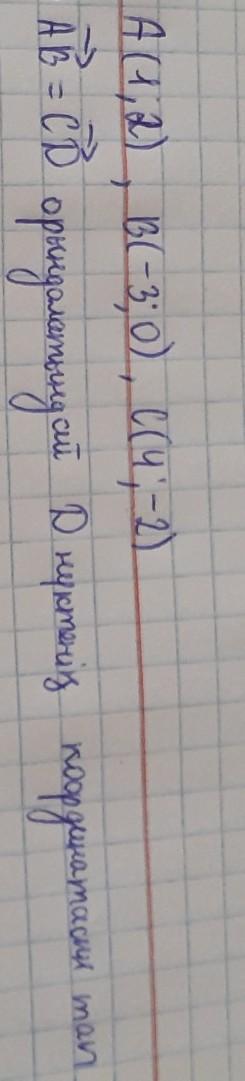 A(1;2), B(-3;0), C(4;-2)
→AB = →CD орындалатындай D нүктенің координатасын тап